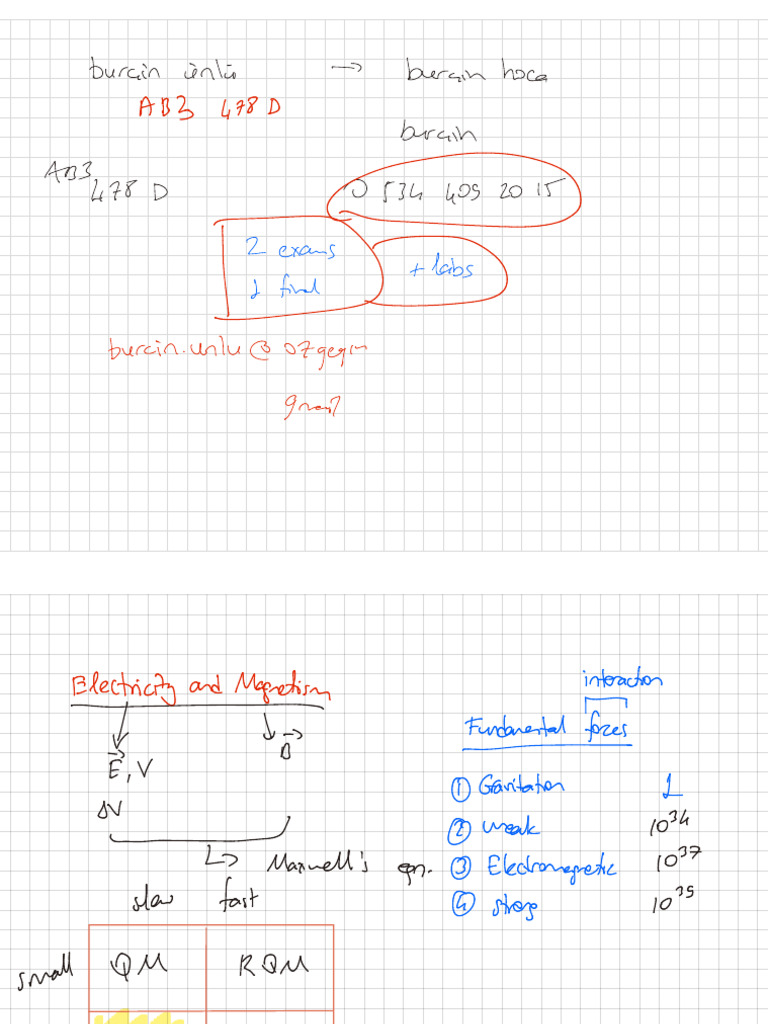 burcin ünlü → burcin hoca
AB3 478 D
burcin
AB3
478 D
0 534 409 20 15
2 exams
1 final
+ labs
burcin.unlu@ozyegin
gmail
interaction
Electricity and Magnetism
Fundamental forces
E, V
B
ΔV
① Gravitation 1
② weak 10^34
Maxwell's eqn.
③ Electromagnetic 10^37
④ strong 10^39
slow fast
small QM RQM